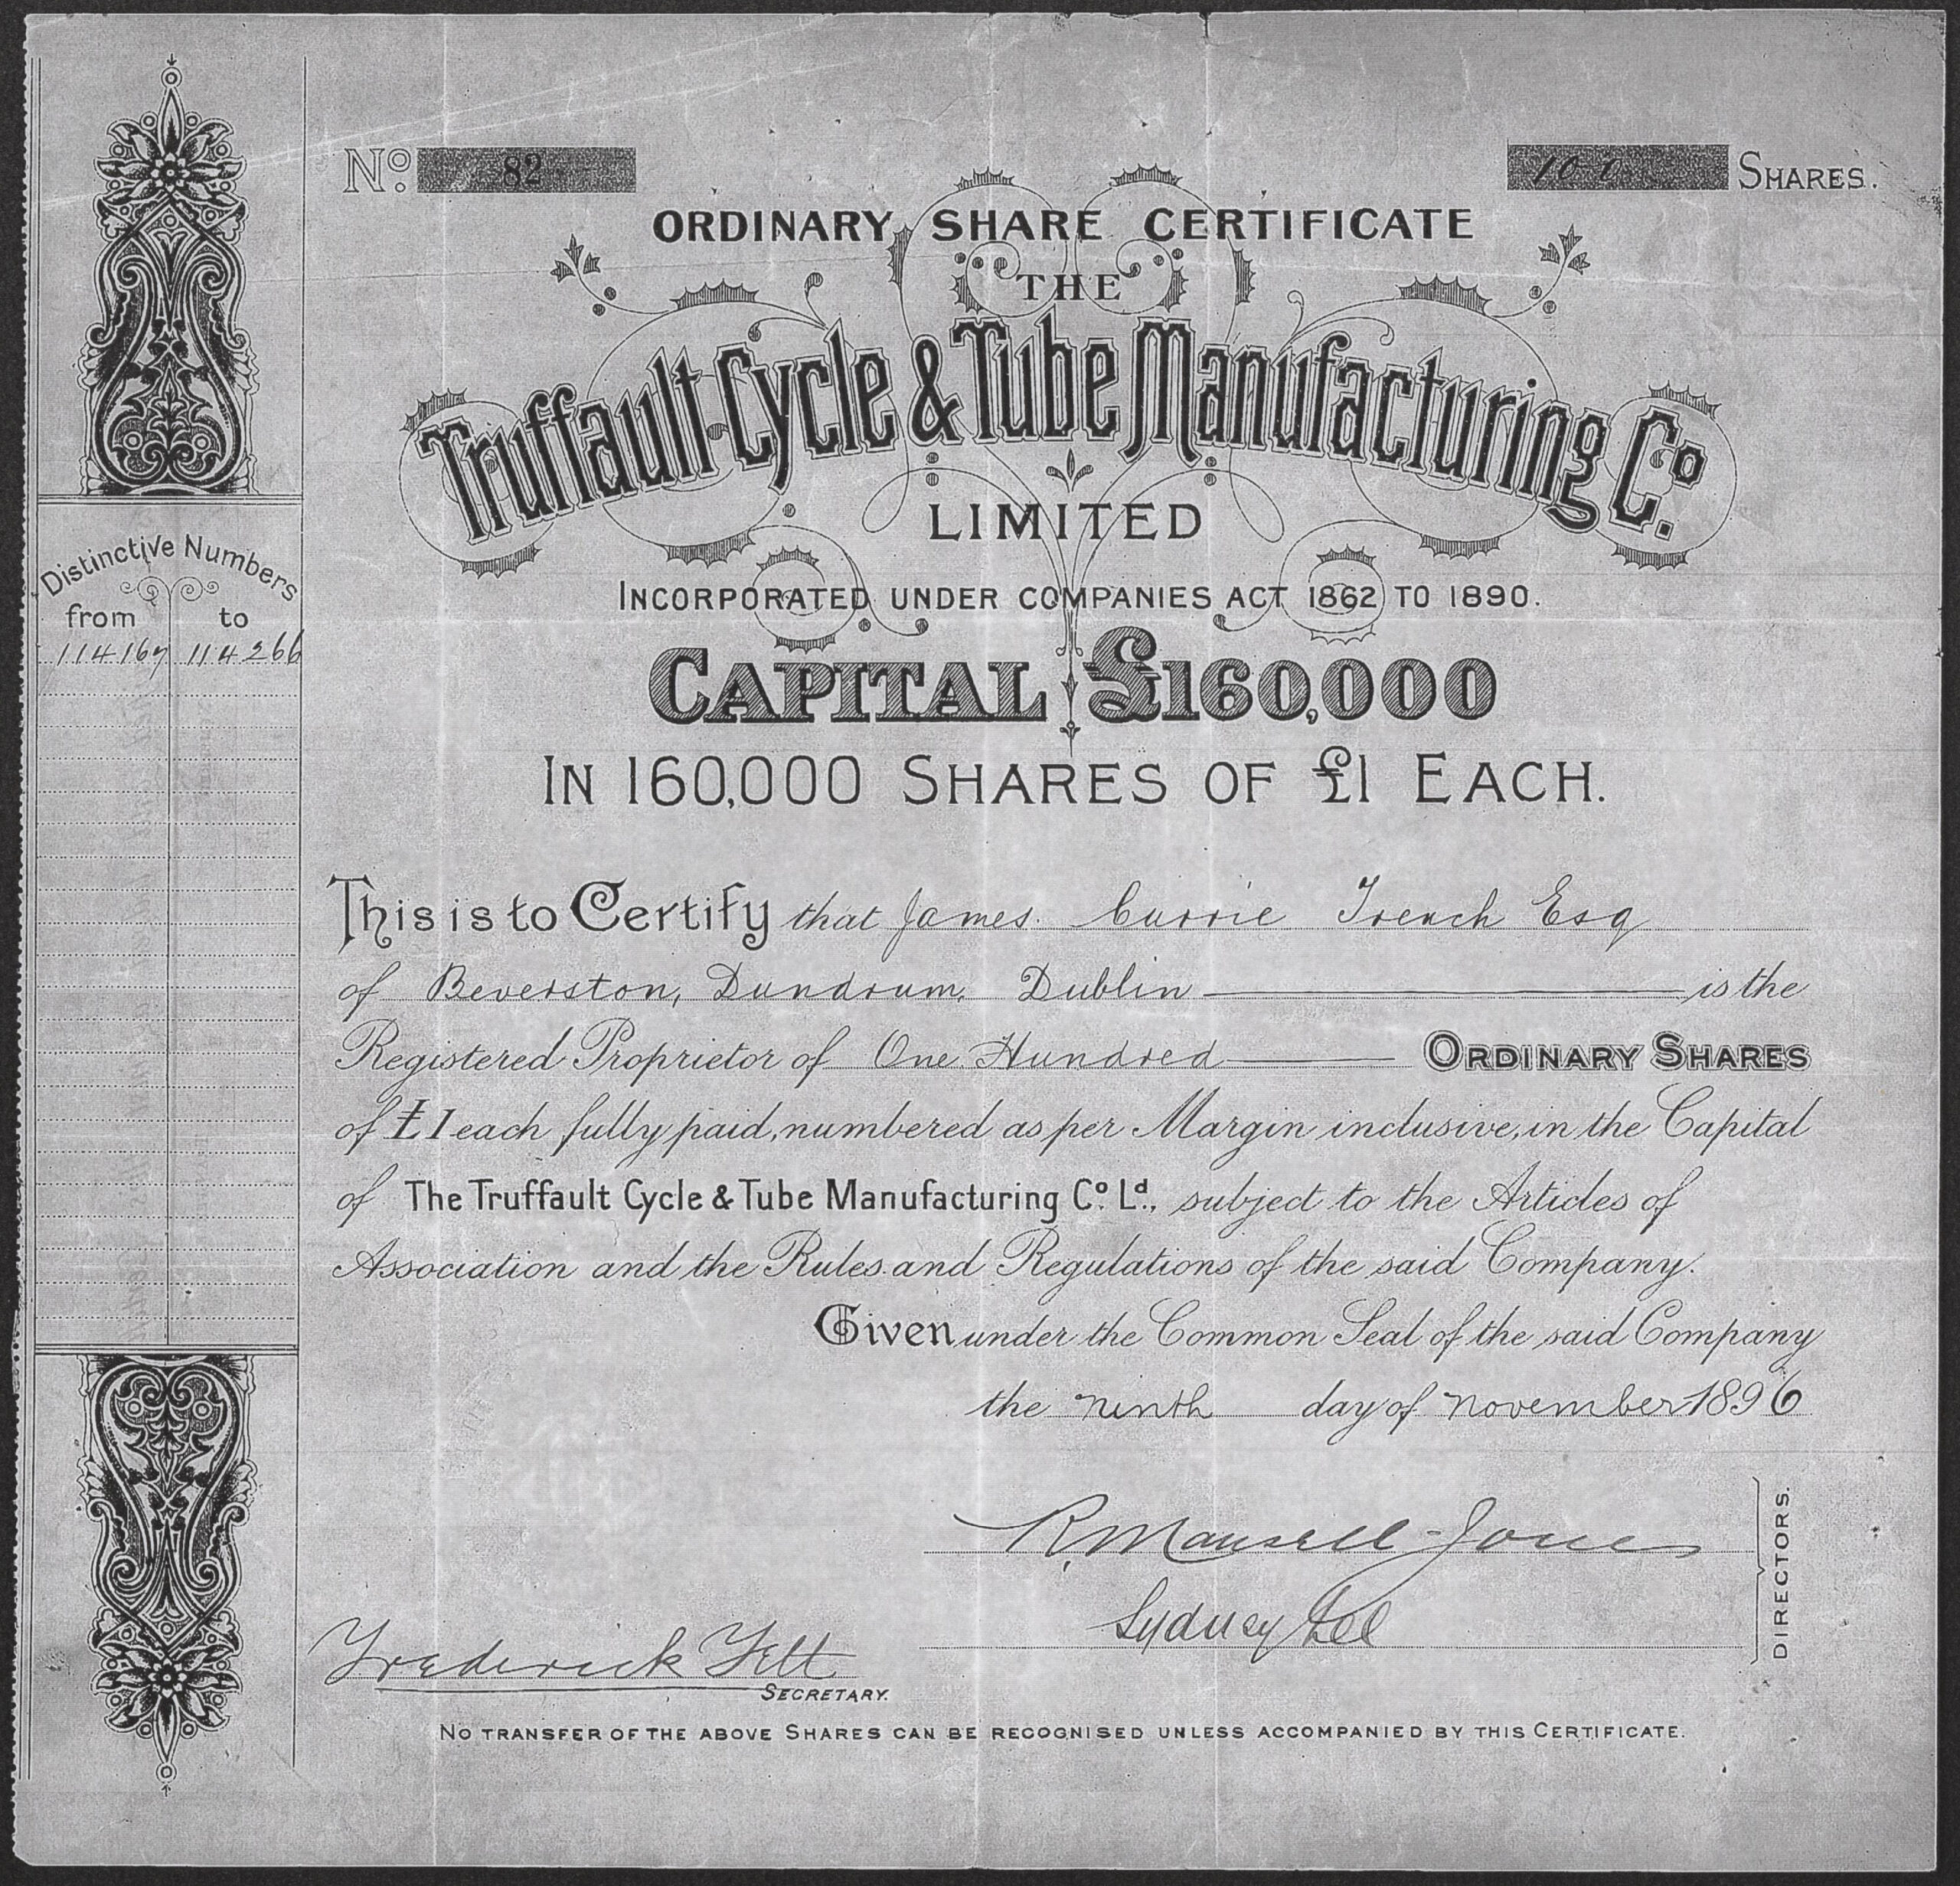 No. 82
100 SHARES.
ORDINARY SHARE CERTIFICATE
THE
Truffault Cycle & Tube Manufacturing Co.
LIMITED
INCORPORATED UNDER COMPANIES ACT 1862 TO 1890.
CAPITAL £160,000
IN 160,000 SHARES OF £1 EACH.
Distinctive Numbers
from to
114167 114266
This is to Certify that James Currie Trench Esq
of Beverston, Dundrum, Dublin is the
Registered Proprietor of One Hundred ORDINARY SHARES
of £1 each fully paid, numbered as per Margin inclusive, in the Capital
of The Truffault Cycle & Tube Manufacturing Co. Ld., subject to the Articles of
Association and the Rules and Regulations of the said Company.
Given under the Common Seal of the said Company
the ninth day of November 1896
R. Mansell-Jones
Sydney Lee
DIRECTORS.
Frederick
SECRETARY.
NO TRANSFER OF THE ABOVE SHARES CAN BE RECOGNISED UNLESS ACCOMPANIED BY THIS CERTIFICATE.